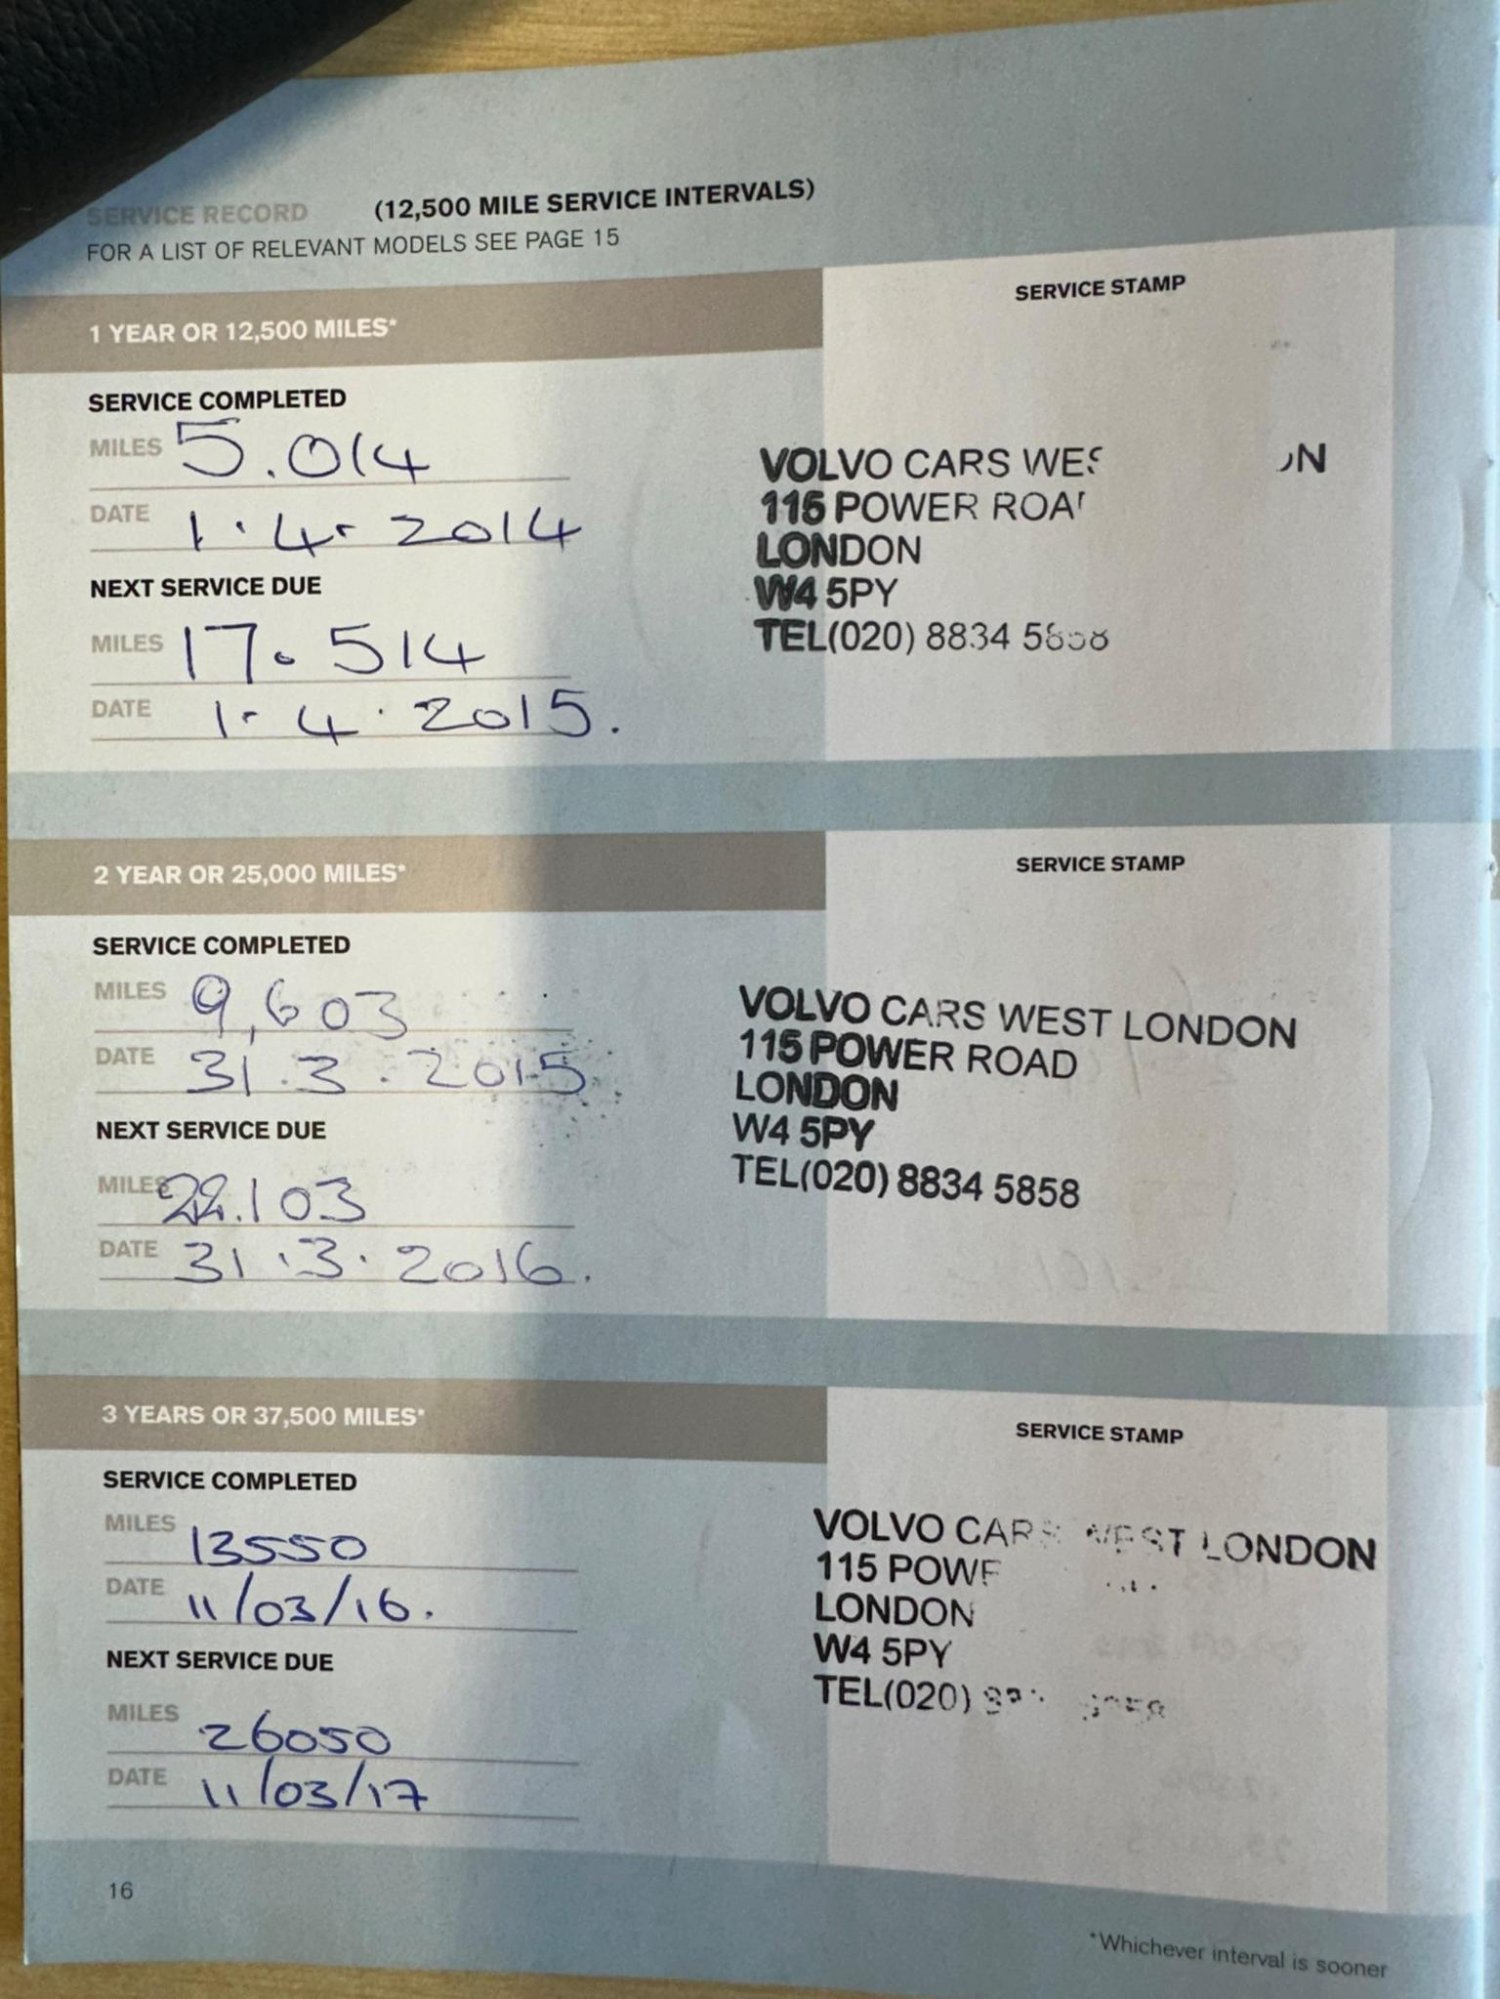 SERVICE RECORD (12,500 MILE SERVICE INTERVALS)
FOR A LIST OF RELEVANT MODELS SEE PAGE 15
1 YEAR OR 12,500 MILES*
SERVICE STAMP
SERVICE COMPLETED
MILES 5.014
DATE 1.4.2014
NEXT SERVICE DUE
MILES 17.514
DATE 1.4.2015.
VOLVO CARS
115 POWER
LONDON
W4 5PY
TEL(020) 8834
2 YEAR OR 25,000 MILES*
SERVICE STAMP
SERVICE COMPLETED
MILES 9,603
DATE 31.3.2015
NEXT SERVICE DUE
MILES 22.103
DATE 31.3.2016.
VOLVO CARS WEST LONDON
115 POWER ROAD
LONDON
W4 5PY
TEL(020) 8834 5858
3 YEARS OR 37,500 MILES*
SERVICE STAMP
SERVICE COMPLETED
MILES 13550
DATE 11/03/16.
NEXT SERVICE DUE
MILES 26050
DATE 11/03/17
VOLVO CARS WEST LONDON
115
LONDON
W4 5PY
TEL(020)
16
*Whichever interval is sooner